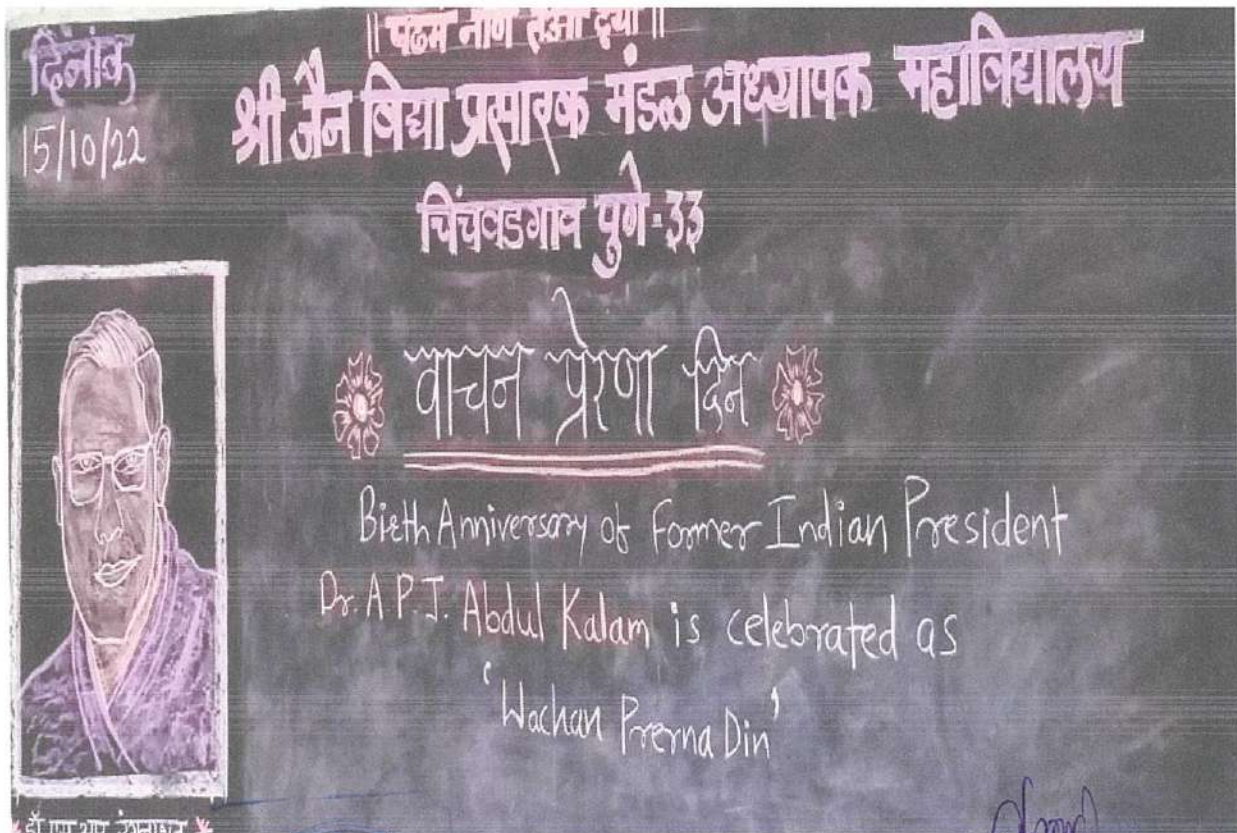 दिनांक
15/10/22
|| पढमं नाणं तओ दया ||
श्री जैन विद्या प्रसारक मंडळ अध्यापक महाविद्यालय
चिंचवडगाव पुणे-33
वाचन प्रेरणा दिन
Birth Anniversary of Former Indian President
Dr. A P.J. Abdul Kalam is celebrated as
'Wachan Prerna Din'